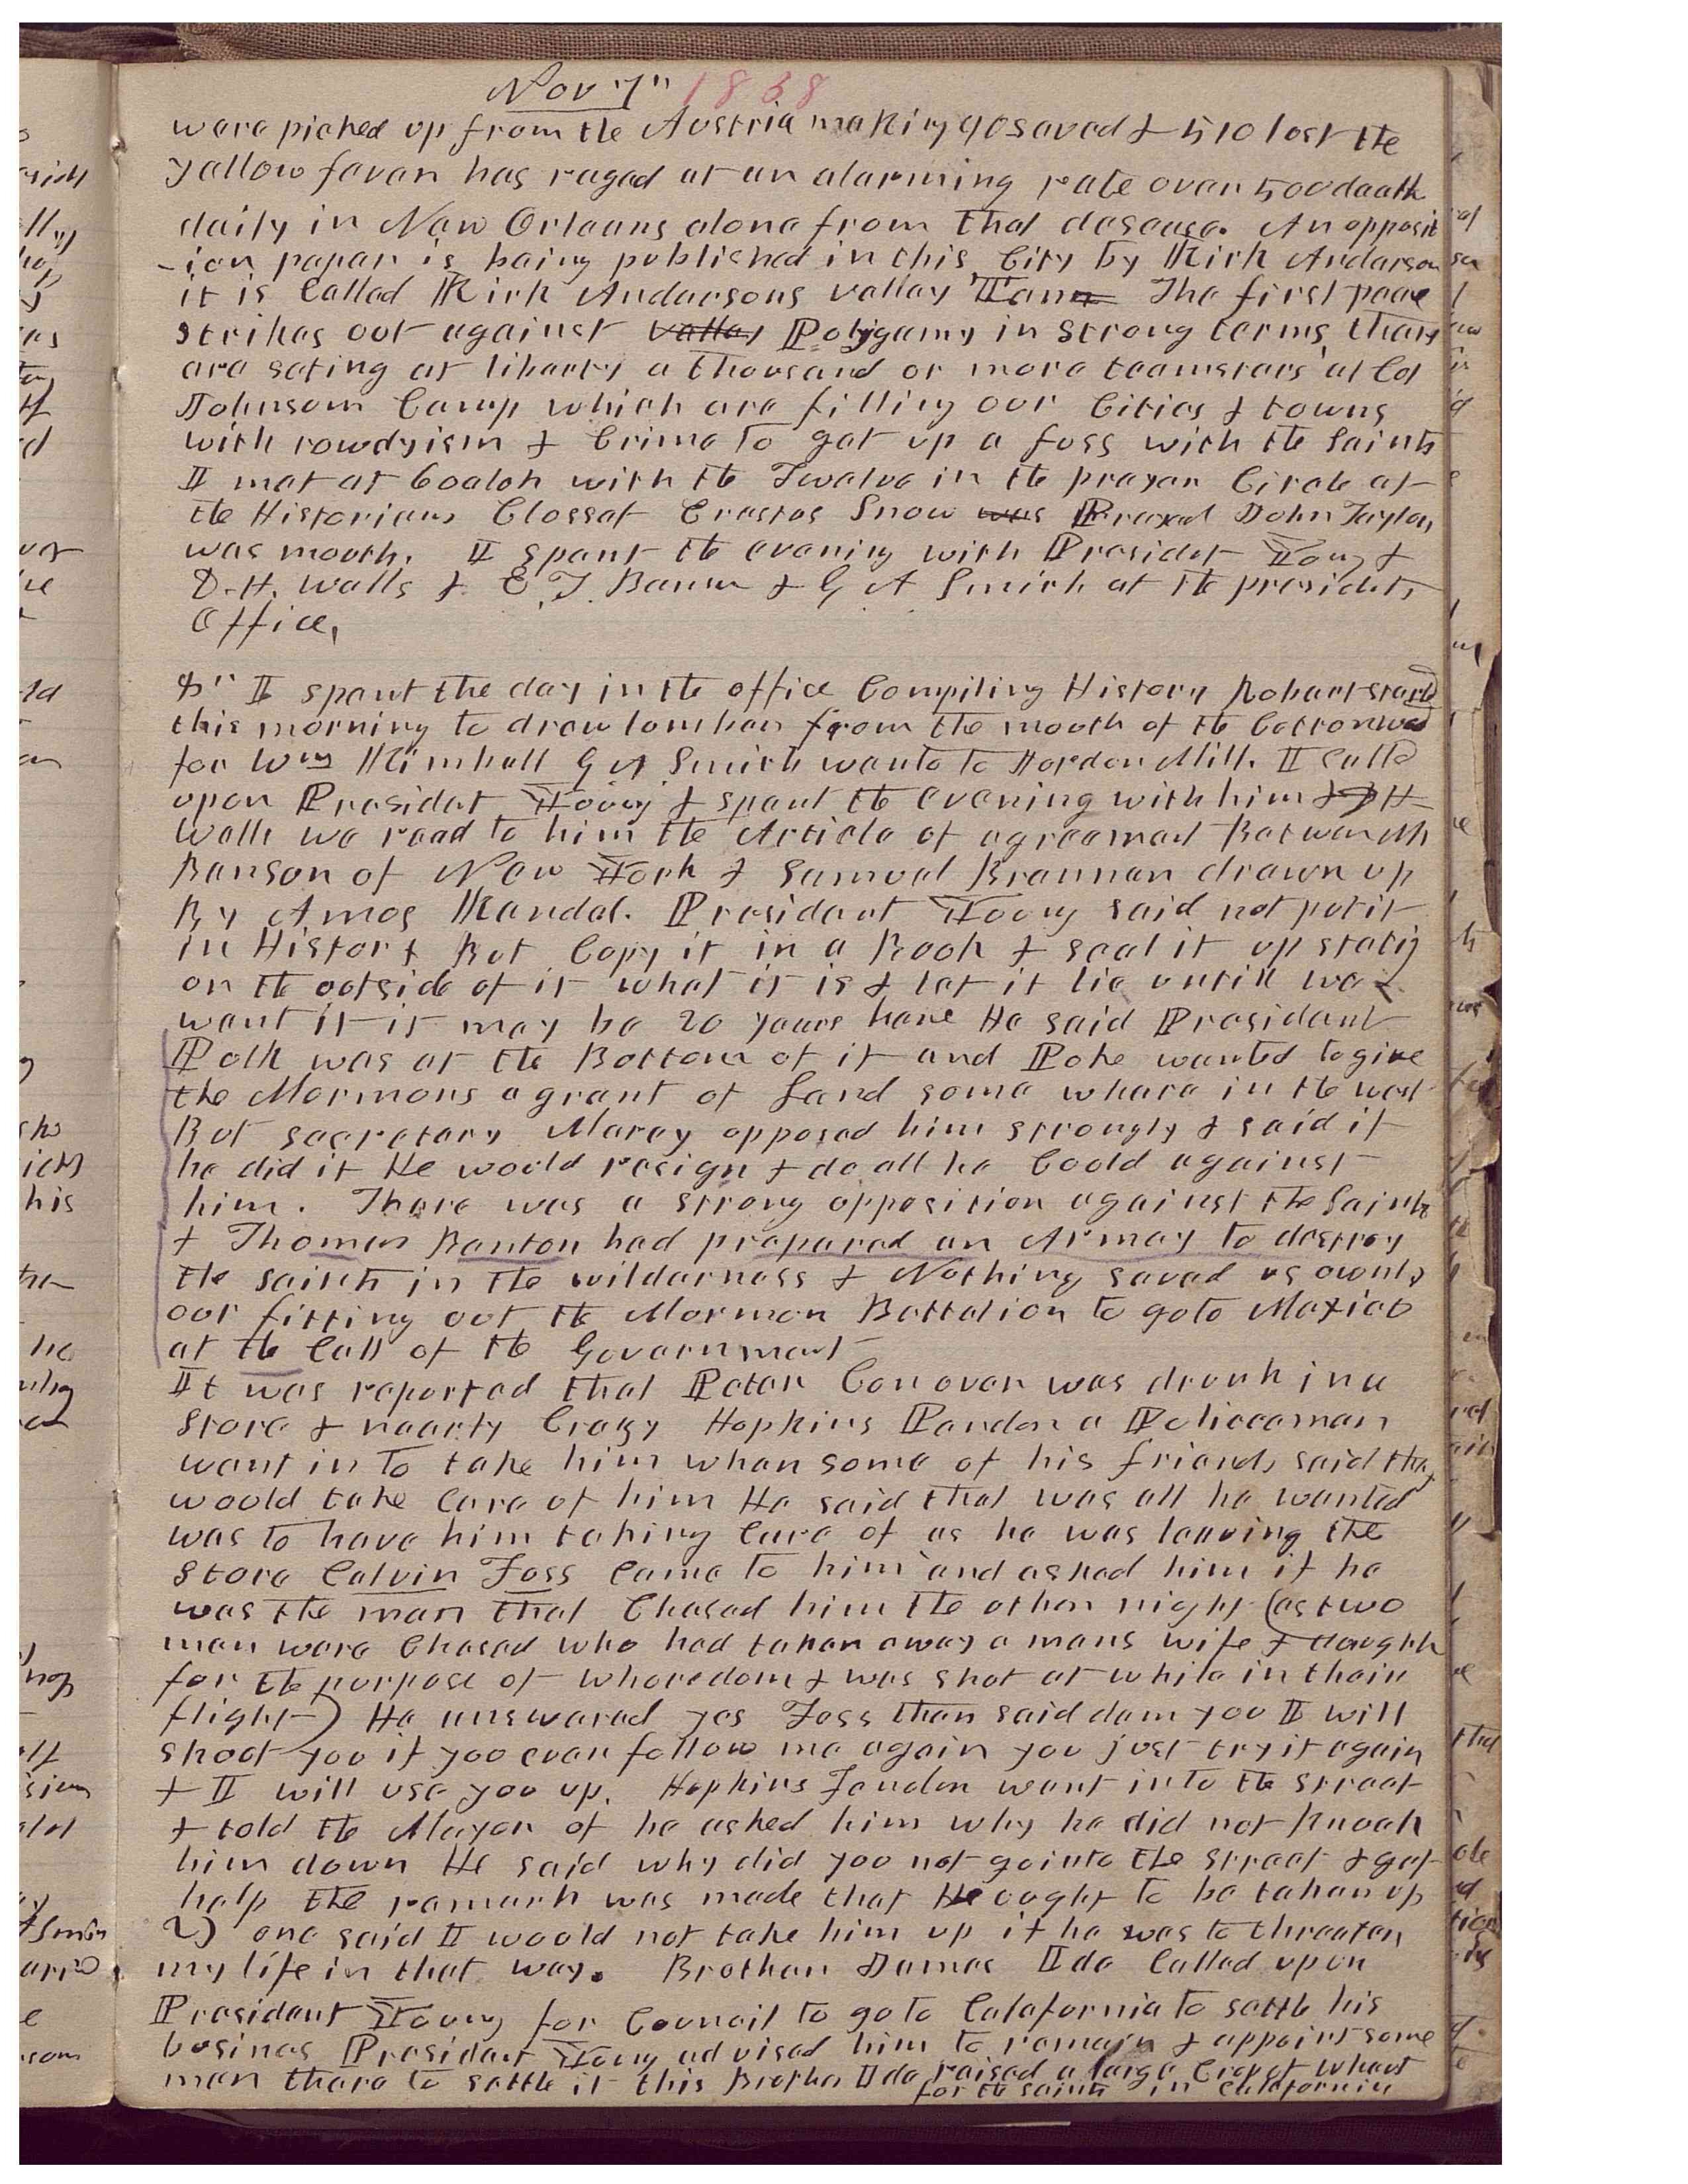 Nov 7" 1858
were picked up from the Austria making 90 saved & 510 lost the
yellow fever has raged at an alarming rate over 500 death
daily in New Orleans alone from that desease. An opposit
-ion paper is being published in this City by Kirk Anderson
it is Called Kirk Andersons valley Tan The first page
strikes out against valley Polygamy in strong terms they
are seting at liberty a thousand or more teamsters at Col
Johnsom Camp which are filling our Cities & towns
with rowdyism & Crime to get up a fuss with the Saints
I met at 6 oclok with the Twelve in the prayer Circle at
the Historians Closset Erastus Snow was Prayed John Taylor
was mouth. I spent the evening with Presidet Young &
D. H. Wells & E. T. Benson & G A Smith at the presidets
Office,
8" I spent the day in the office Compiling History Robert started
this morning to draw lumber from the mouth of the Cottonwood
for Wm Kimball G A Smith wento to Jordon Mill. I Called
upon Presidet Young & spent the evening with him & D H
Wells we read to him the Article of agreement Between Mr
Benson of New York & Samuel Brannan drawn up
By Amos Kendal. President Young said not put it
in History But Copy it in a Book & seal it up stating
on the outside of it what it is & let it lie untill we
want it it may be 20 years hene He said President
Polk was at the Bottom of it and Poke wanted to give
the Mormons a grant of Land some whare in the west
But secretary Marcy opposed him strongly & said if
he did it He would resign & do all he Could against
him. There was a strong opposition against the Saints
& Thomas Benton had prepared an Armay to destroy
the saints in the wilderness & Nothing saved us ownly
our fitting out the Mormon Battalion to go to Mexico
at the Call of the Government
It was reported that Peter Conover was drunk in a
store & nearly Crazy Hopkins Pender a Policeeman
went in to take him when some of his friends said they
would take Care of him He said that was all he wanted
was to have him taking Care of as he was leaving the
store Calvin Foss Came to him and asked him if he
was the man that Chased him the other night (as two
men were Chased who had taken away a mans wife & daughter
for the purpose of whoredom & was shot at while in their
flight) He answered yes Foss then said dam you I will
shoot you if you ever follow me again you just try it again
& I will use you up. Hopkins Pender went into the street
& told the Mayor of he asked him why he did not knock
him down He said why did you not go into the street & get
help the remark was made that He ought to be taken up
one said I would not take him up if he was to threaten
my life in that way. Brother James Ide Called upon
President Young for Council to go to Calafornia to settle his
busines President Young advised him to remain & appoint some
man there to settle it this Brother Ide raised a large Crop of wheat
for the saints in Calafornia